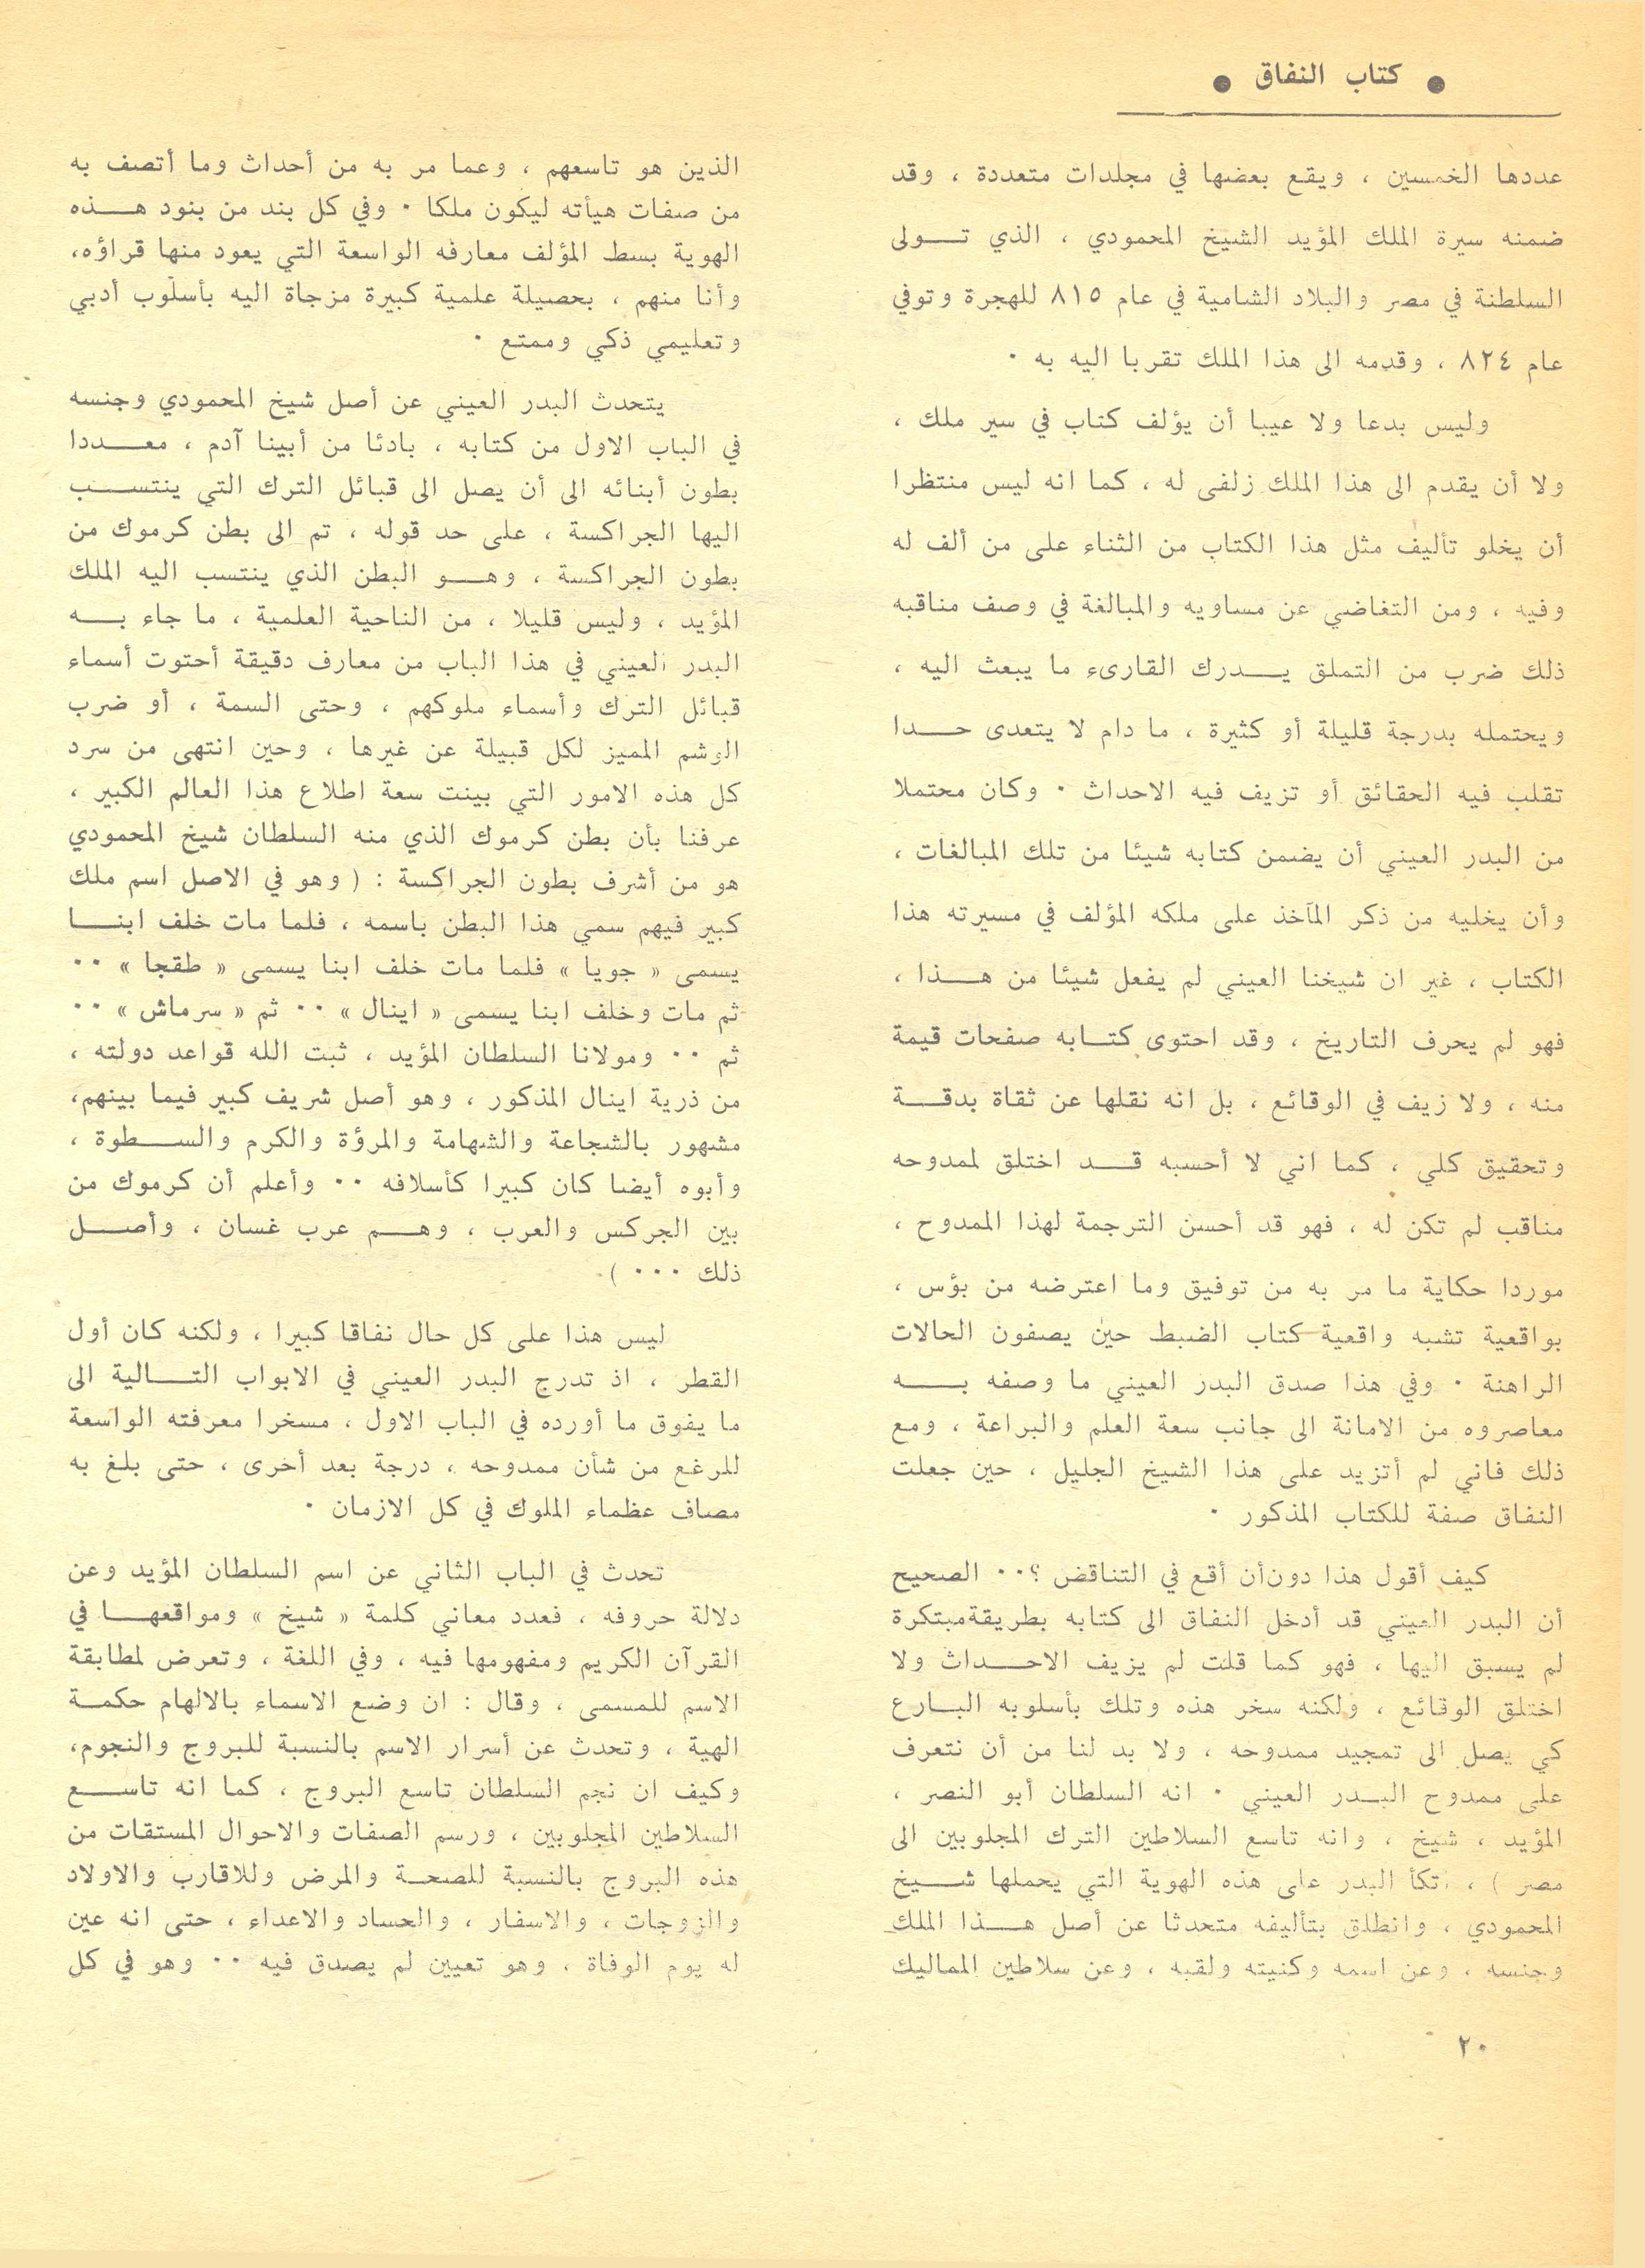 ● كتاب النفاق ●
عددها الخمسين ، ويقع بعضها في مجلدات متعددة ، وقد
ضمنه سيرة الملك المؤيد الشيخ المحمودي ، الذي تـــولى
السلطنة في مصر والبلاد الشامية في عام ٨١٥ للهجرة وتوفي
عام ٨٢٤ ، وقدمه الى هذا الملك تقربا اليه به ٠
وليس بدعا ولا عيبا أن يؤلف كتاب في سير ملك ،
ولا أن يقدم الى هذا الملك زلفى له ، كما انه ليس منتظرا
أن يخلو تأليف مثل هذا الكتاب من الثناء على من ألف له
وفيه ، ومن التغاضي عن مساويه والمبالغة في وصف مناقبه
ذلك ضرب من التملق يـــدرك القارىء ما يبعث اليه ،
ويحتمله بدرجة قليلة أو كثيرة ، ما دام لا يتعدى حـــدا
تقلب فيه الحقائق أو تزيف فيه الاحداث ٠ وكان محتملا
من البدر العيني أن يضمن كتابه شيئا من تلك المبالغات ،
وأن يخليه من ذكر المآخذ على ملكه المؤلف في مسيرته هذا
الكتاب ، غير ان شيخنا العيني لم يفعل شيئا من هـــذا ،
فهو لم يحرف التاريخ ، وقد احتوى كتـــابه صفحات قيمة
منه ، ولا زيف في الوقائع ، بل انه نقلها عن ثقاة بدقـــة
وتحقيق كلي ، كما اني لا أحسبه قـــد اختلق لممدوحه
مناقب لم تكن له ، فهو قد أحسن الترجمة لهذا الممدوح ،
موردا حكاية ما مر به من توفيق وما اعترضه من بؤس ،
بواقعية تشبه واقعية كتاب الضبط حين يصفون الحالات
الراهنة ٠ وفي هذا صدق البدر العيني ما وصفه بـــه
معاصروه من الامانة الى جانب سعة العلم والبراعة ، ومع
ذلك فاني لم أتزيد على هذا الشيخ الجليل ، حين جعلت
النفاق صفة للكتاب المذكور ٠
كيف أقول هذا دون أن أقع في التناقض ؟ ٠٠ الصحيح
أن البدر العيني قد أدخل النفاق الى كتابه بطريقة مبتكرة
لم يسبق اليها ، فهو كما قلت لم يزيف الاحـــداث ولا
اختلق الوقائع ، ولكنه سخر هذه وتلك بأسلوبه البـــارع
كي يصل الى تمجيد ممدوحه ، ولا بد لنا من أن نتعرف
على ممدوح البـــدر العيني ٠ انه السلطان أبو النصر ،
المؤيد ، شيخ ، وانه تاسع السلاطين الترك المجلوبين الى
مصر ) ، اتكأ البدر على هذه الهوية التي يحملها شـــيخ
المحمودي ، وانطلق بتأليفه متحدثا عن أصل هـــذا الملك
وجنسه ، وعن اسمه وكنيته ولقبه ، وعن سلاطين المماليك
الذين هو تاسعهم ، وعما مر به من أحداث وما أتصف به
من صفات هيأته ليكون ملكا ٠ وفي كل بند من بنود هـــذه
الهوية بسط المؤلف معارفه الواسعة التي يعود منها قراؤه،
وأنا منهم ، بحصيلة علمية كبيرة مزجاة اليه بأسلوب أدبي
وتعليمي ذكي وممتع ٠
يتحدث البدر العيني عن أصل شيخ المحمودي وجنسه
في الباب الاول من كتابه ، بادئا من أبينا آدم ، معـــددا
بطون أبنائه الى أن يصل الى قبائل الترك التي ينتســـب
اليها الجراكسة ، على حد قوله ، تم الى بطن كرموك من
بطون الجراكسة ، وهـــو البطن الذي ينتسب اليه الملك
المؤيد ، وليس قليلا ، من الناحية العلمية ، ما جاء بـــه
البدر العيني في هذا الباب من معارف دقيقة أحتوت أسماء
قبائل الترك وأسماء ملوكهم ، وحتى السمة ، أو ضرب
الوشم المميز لكل قبيلة عن غيرها ، وحين انتهى من سرد
كل هذه الامور التي بينت سعة اطلاع هذا العالم الكبير ،
عرفنا بأن بطن كرموك الذي منه السلطان شيخ المحمودي
هو من أشرف بطون الجراكسة : ( وهو في الاصل اسم ملك
كبير فيهم سمي هذا البطن باسمه ، فلما مات خلف ابنـــا
يسمى « جويا » فلما مات خلف ابنا يسمى « طقجا » ٠٠
ثم مات وخلف ابنا يسمى « اينال » ٠٠ ثم « سرماش » ٠٠
ثم ٠٠ ومولانا السلطان المؤيد ، ثبت الله قواعد دولته ،
من ذرية اينال المذكور ، وهو أصل شريف كبير فيما بينهم،
مشهور بالشجاعة والشهامة والمرؤة والكرم والســـطوة ،
وأبوه أيضا كان كبيرا كأسلافه ٠٠ وأعلم أن كرموك من
بين الجركس والعرب ، وهـــم عرب غسان ، وأصـــل
ذلك ٠٠٠ )
ليس هذا على كل حال نفاقا كبيرا ، ولكنه كان أول
القطر ، اذ تدرج البدر العيني في الابواب التـــالية الى
ما يفوق ما أورده في الباب الاول ، مسخرا معرفته الواسعة
للمرغع من شأن ممدوحه ، درجة بعد أخرى ، حتى بلغ به
مصاف عظماء الملوك في كل الازمان ٠
تحدث في الباب الثاني عن اسم السلطان المؤيد وعن
دلالة حروفه ، فعدد معاني كلمة « شيخ » ومواقعهـــا في
القرآن الكريم ومفهومها فيه ، وفي اللغة ، وتعرض لمطابقة
الاسم للمسمى ، وقال : ان وضع الاسماء بالالهام حكمـــة
الهية ، وتحدث عن أسرار الاسم بالنسبة للبروج والنجوم،
وكيف ان نجم السلطان تاسع البروج ، كما انه تاســـع
السلاطين المجلوبين ، ورسم الصفات والاحوال المستقات من
هذه البروج بالنسبة للصحـــة والمرض وللاقارب والاولاد
والزوجات ، والاسفار ، والحساد والاعداء ، حتى انه عين
له يوم الوفاة ، وهو تعيين لم يصدق فيه ٠٠ وهو في كل
٢٠